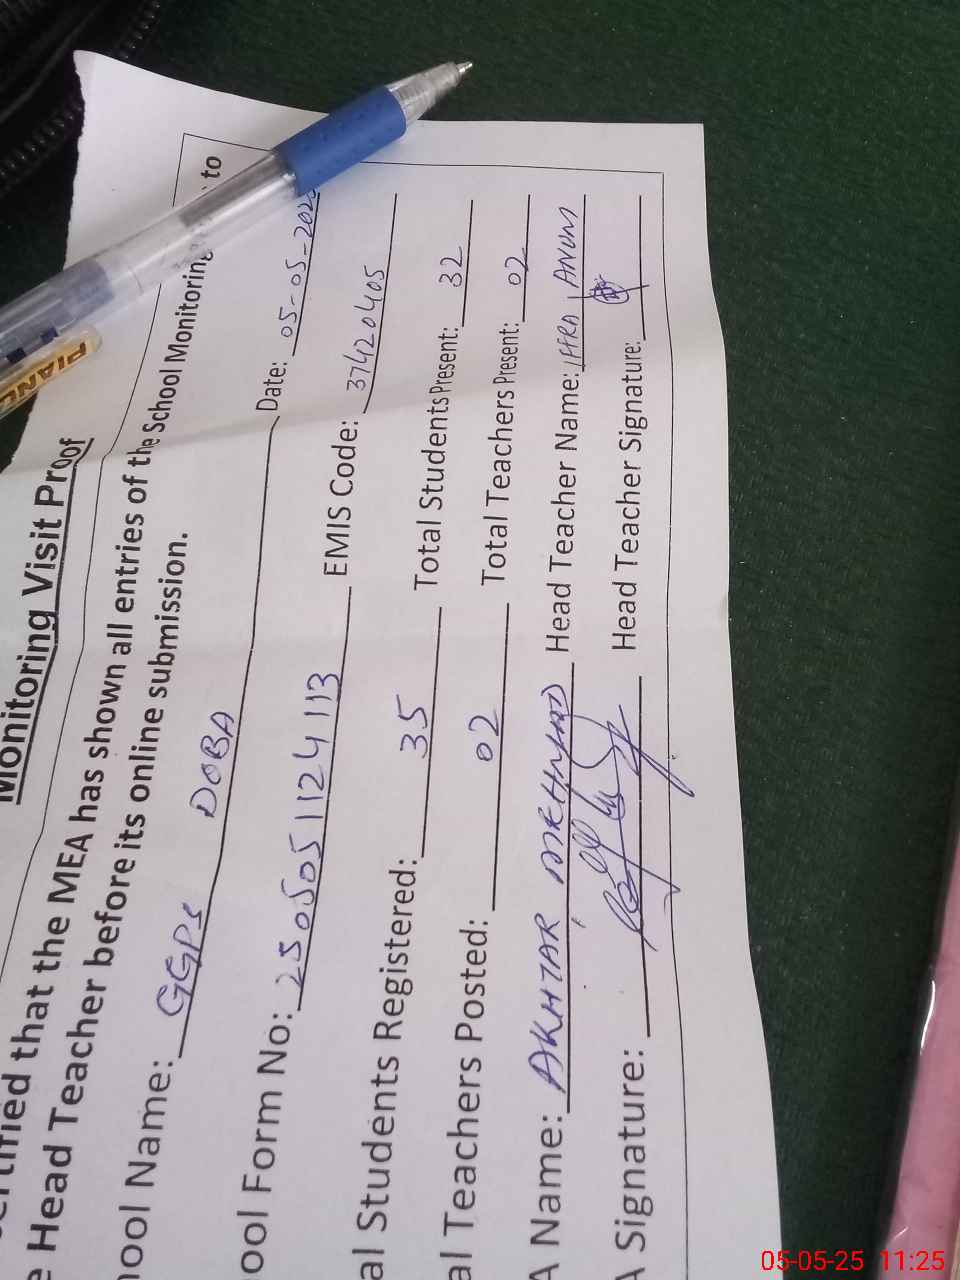 Monitoring Visit Proof
ertified that the MEA has shown all entries of the School Monitoring to
e Head Teacher before its online submission.
hool Name: GGPS DOBA Date: 05-05-202
ool Form No: 2505051124113 EMIS Code: 37420405
al Students Registered: 35 Total Students Present: 32
al Teachers Posted: 02 Total Teachers Present: 02
A Name: AKHTAR MEHMOOD Head Teacher Name: IFFRA ANUM
A Signature: Head Teacher Signature:
PIANO
05-05-25 11:25